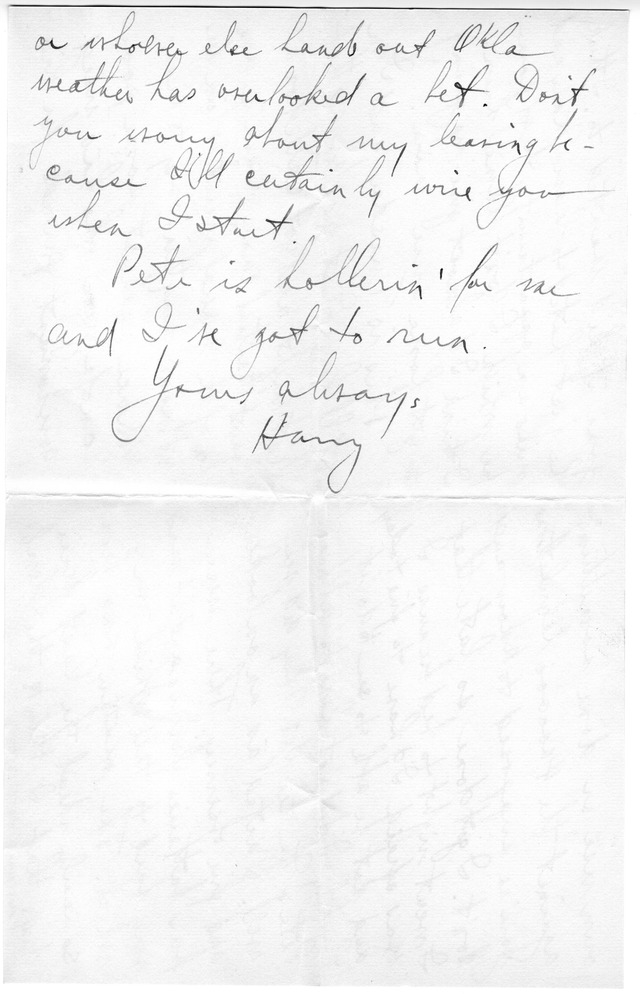 or whoever else hands out Okla
weather has overlooked a bet. Don't
you worry about my leaving be-
cause I'll certainly wire you
when I start.
Pete is hollerin' for me
and I've got to run.
Yours always,
Harry